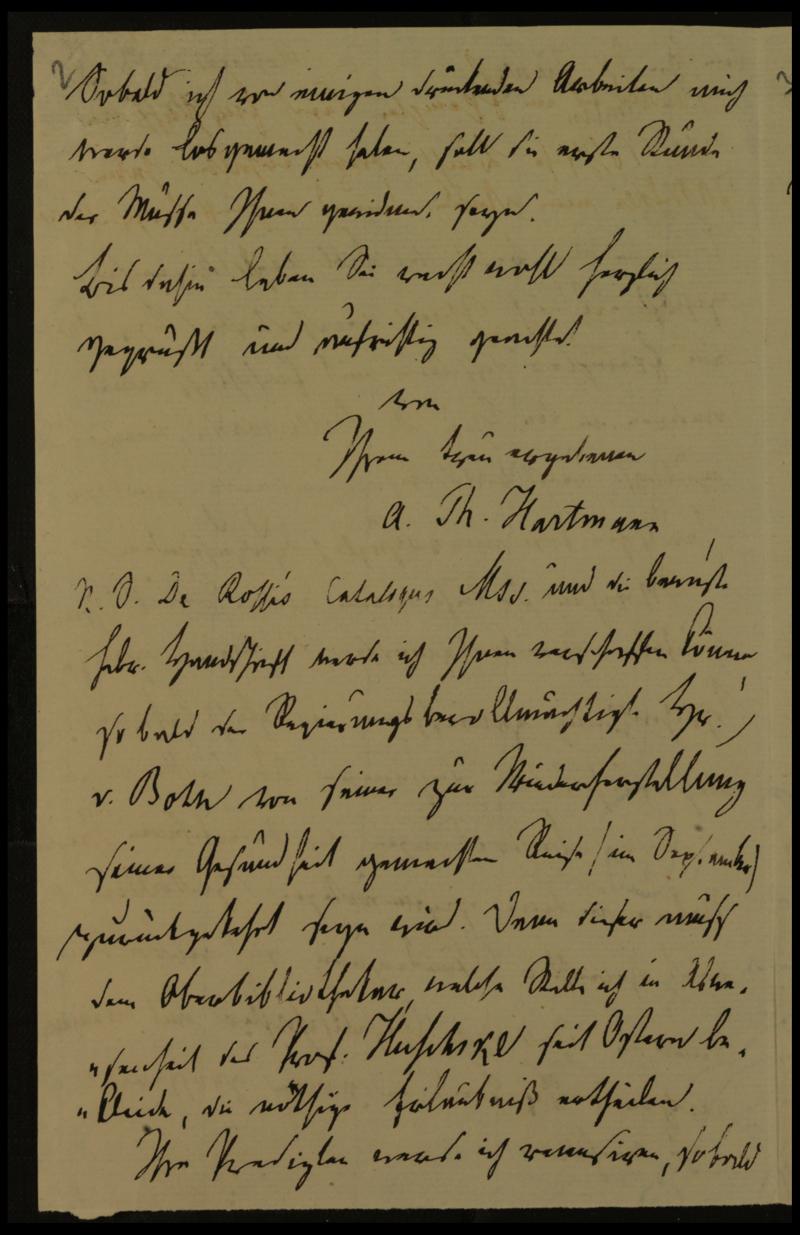 2
Sobald ich von einigen drückenden Arbeiten mich
werde losgemacht haben, soll die erste Stunde
der Musse Ihnen gewidmet seyn.
Bis dahin leben Sie recht wohl herzlich
gegrüßt und aufrichtig geachtet
von
Ihrem treu ergebenen
A. Th. Hartmann
N. S. De Rossis Catalogus Mss. und die bewußte
hebr. Handschrift werde ich Ihnen verschaffen können
so bald der Regierungsbevollmächtigte Hr.
v. Both von seiner zur Wiederherstellung
seiner Gesundheit gemachten Reise (im September)
zurückgekehrt seyn wird. Denn dieser muß
dem Oberbibliothekar, welche Stelle ich in Abwe-
senheit des Prof. Huschke seit Ostern be-
kleide, die nöthige Erlaubniß ertheilen.
Ihre Predigten werde ich recensiren, sobald